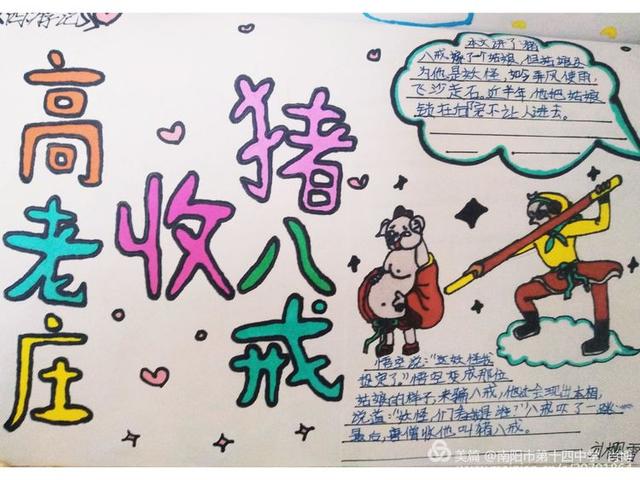 西游记
高老庄
收
猪八戒
本文讲了猪
八戒嫁了个姑娘，但姑娘以
为他是妖怪，
飞沙走石。近半年他把姑娘
锁在后宅不让人进去。
悟空说：“这妖怪我
捉定了。”悟空变成那位
姑娘的样子，来骗八戒，他还会现出本相，
说道：“妖怪，们看我是谁”八戒吓了一跳
最后，唐僧收他叫猪八戒。
美篇 @南阳市第十四中学